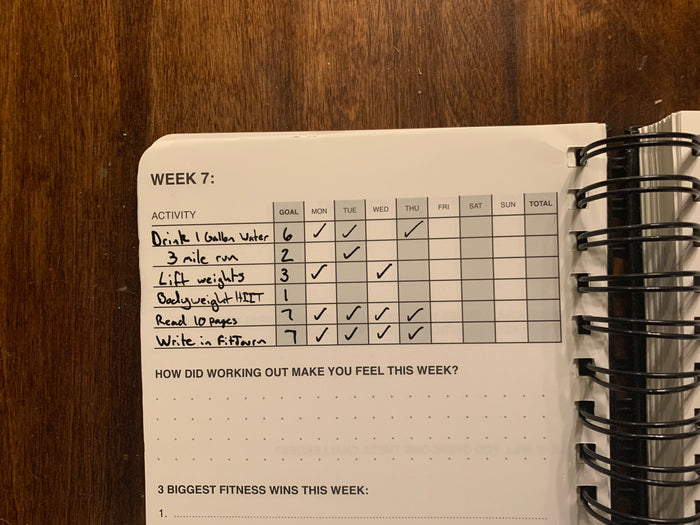 WEEK 7:
ACTIVITY GOAL MON TUE WED THU FRI SAT SUN TOTAL
Drink 1 Gallon Water 6 ✓ ✓ ✓
3 mile run 2 ✓
Lift weights 3 ✓ ✓
Bodyweight HIIT 1
Read 10 pages 7 ✓ ✓ ✓ ✓
Write in FitJourn 7 ✓ ✓ ✓ ✓
HOW DID WORKING OUT MAKE YOU FEEL THIS WEEK?
3 BIGGEST FITNESS WINS THIS WEEK:
1.